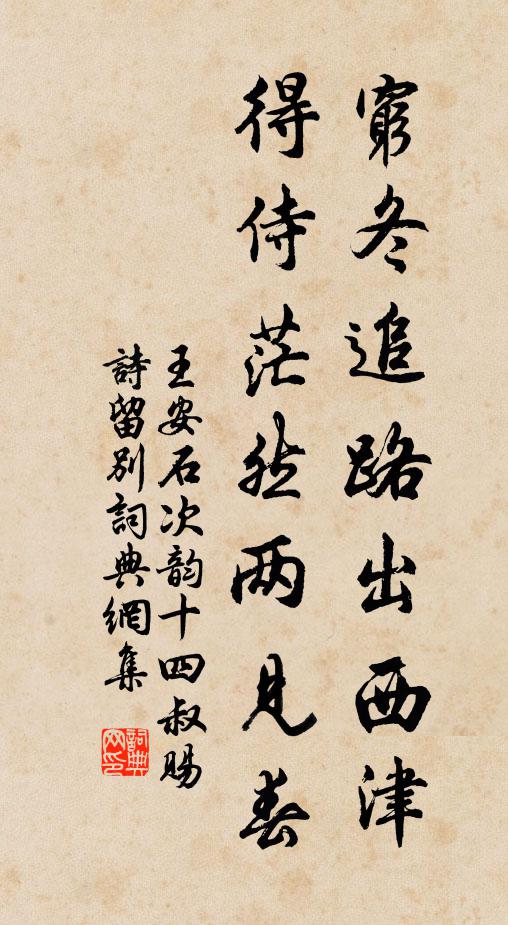 窮冬追路出西津
得侍茫然两見春
王安石次韵十四叔賜
詩留别詞典網集
詞典
网印